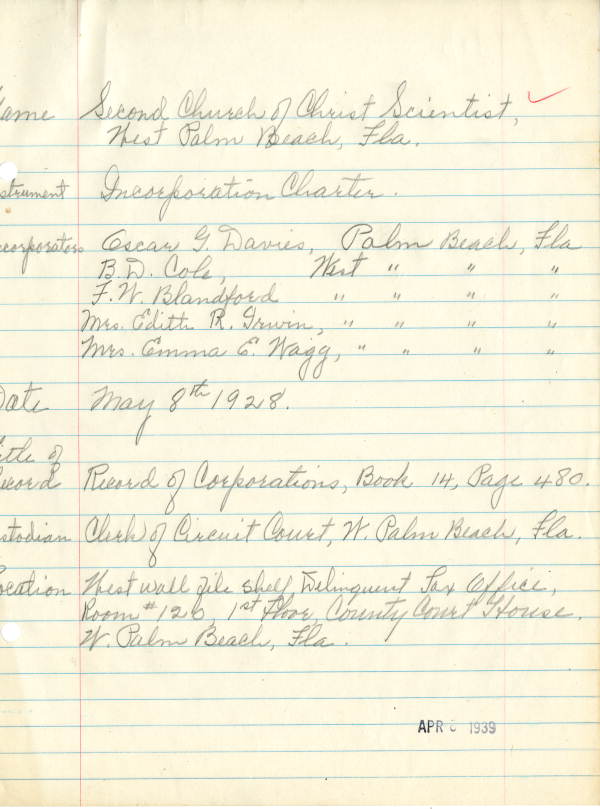 ame Second Church of Christ Scientist,
West Palm Beach, Fla.
strument Incorporation Charter.
corporators Oscar G. Davies, Palm Beach, Fla
B. D. Cole, West " " "
F. W. Blandford " " " "
Mrs. Edith R. Irwin, " " " "
Mrs. Emma E. Wagg, " " " "
Date May 8th 1928.
itle of
ecord Record of Corporations, Book 14, Page 480.
stodian Clerk of Circuit Court, W. Palm Beach, Fla.
ocation West wall file shelf Delinquent Tax Office,
Room #126 1st Floor, County Court House.
W. Palm Beach, Fla.
APR 1939